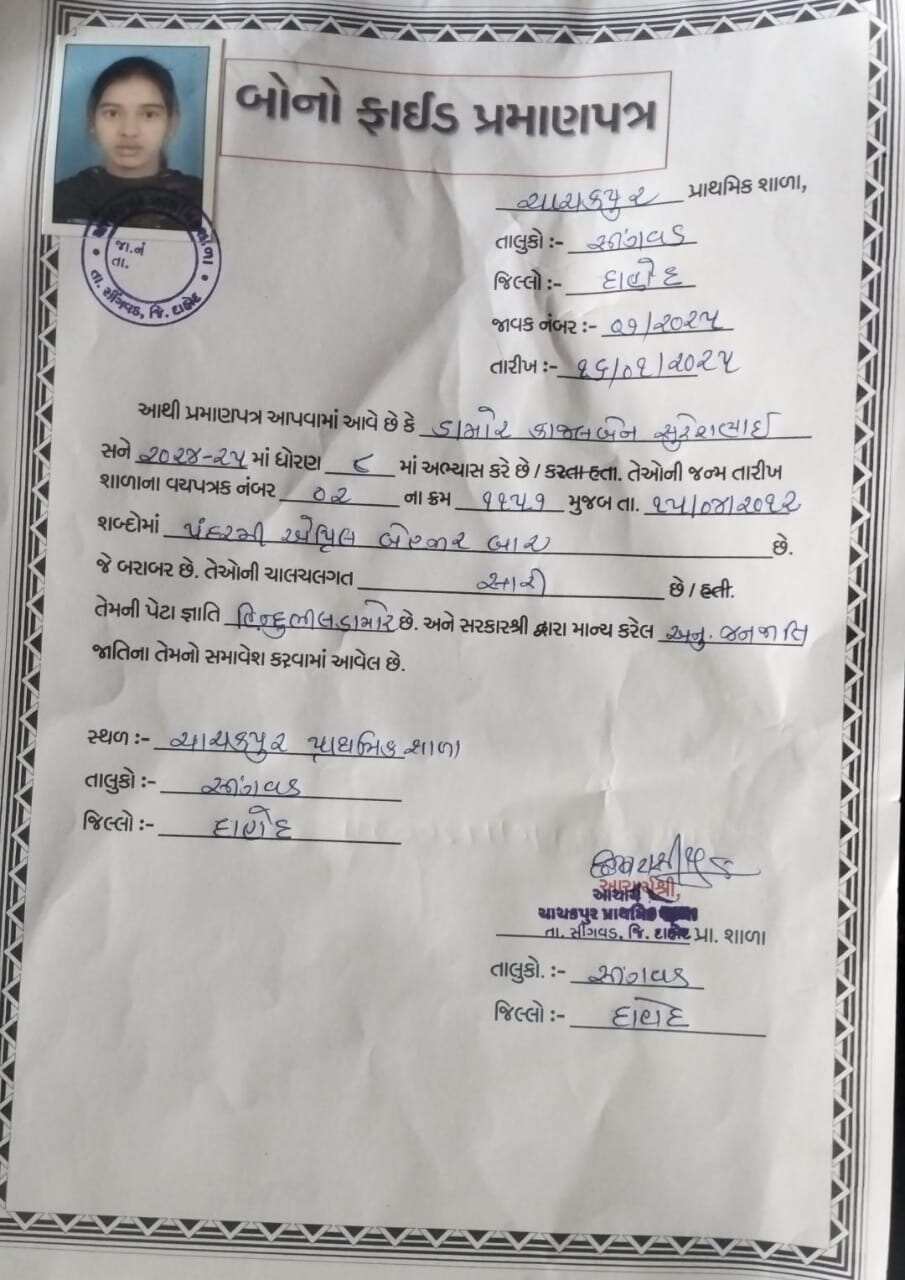 બોનો ફાઈડ પ્રમાણપત્ર
ચાચકપુર પ્રાથમિક શાળા,
તાલુકો :- સીંગવડ
જિલ્લો :- દાહોદ
જાવક નંબર :- ૦૧/૨૦૨૫
તારીખ :- ૧૬/૦૧/૨૦૨૫
જા.નં
તા.
તા. સીંગવડ, જિ. દાહોદ
આથી પ્રમાણપત્ર આપવામાં આવે છે કે ડામોર કાજલબેન સુરેશભાઈ
સને ૨૦૨૪-૨૫ માં ધોરણ ૮ માં અભ્યાસ કરે છે / કરતા હતા. તેઓની જન્મ તારીખ
શાળાના વયપત્રક નંબર ૦૨ ના ક્રમ ૧૧૫૧ મુજબ તા. ૧૫/૦૪/૨૦૧૨
શબ્દોમાં પંદરમી એપ્રિલ બેહજાર બાર છે.
જે બરાબર છે. તેઓની ચાલચલગત સારી છે / હતી.
તેમની પેટા જ્ઞાતિ હિન્દુભીલડામોર છે. અને સરકારશ્રી દ્વારા માન્ય કરેલ અનુ. જનજાતિ
જાતિના તેમનો સમાવેશ કરવામાં આવેલ છે.
સ્થળ :- ચાચકપુર પ્રાથમિક શાળા
તાલુકો :- સીંગવડ
જિલ્લો :- દાહોદ
આચાર્યશ્રી,
આચાર્ય
ચાચકપુર પ્રાથમિક
તા. સીંગવડ, જિ. દાહોદ પ્રા. શાળા
તાલુકો. :- સીંગવડ
જિલ્લો :- દાહોદ